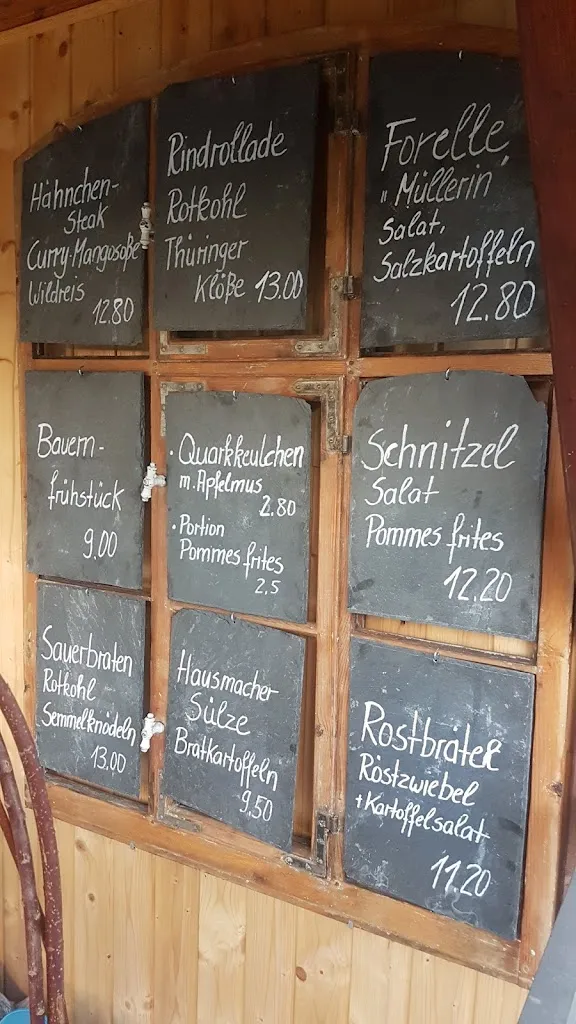 Hähnchen-
Steak
Curry-Mangosoße
Wildreis
12.80
Rindrollade
Rotkohl
Thüringer
Klöße 13.00
Forelle
"Müllerin"
Salat,
Salzkartoffeln
12.80
Bauern-
frühstück
9.00
· Quarkkeulchen
m. Apfelmus
2.80
· Portion
Pommes frites
2.5
Schnitzel
Salat
Pommes frites
12.20
Sauerbraten
Rotkohl
Semmelknödeln
13.00
Hausmacher
Sülze
Bratkartoffeln
9.50
Rostbrätel
Röstzwiebel
+ Kartoffelsalat
11.20